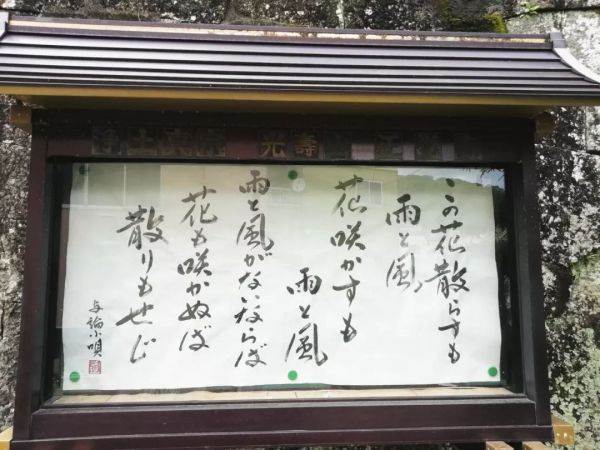 浄土真宗 光壽山 正
この花散らすも
雨と風
花咲かすも
雨と風
雨と風がないならば
花も咲かぬば
散りもせじ
与論小唄